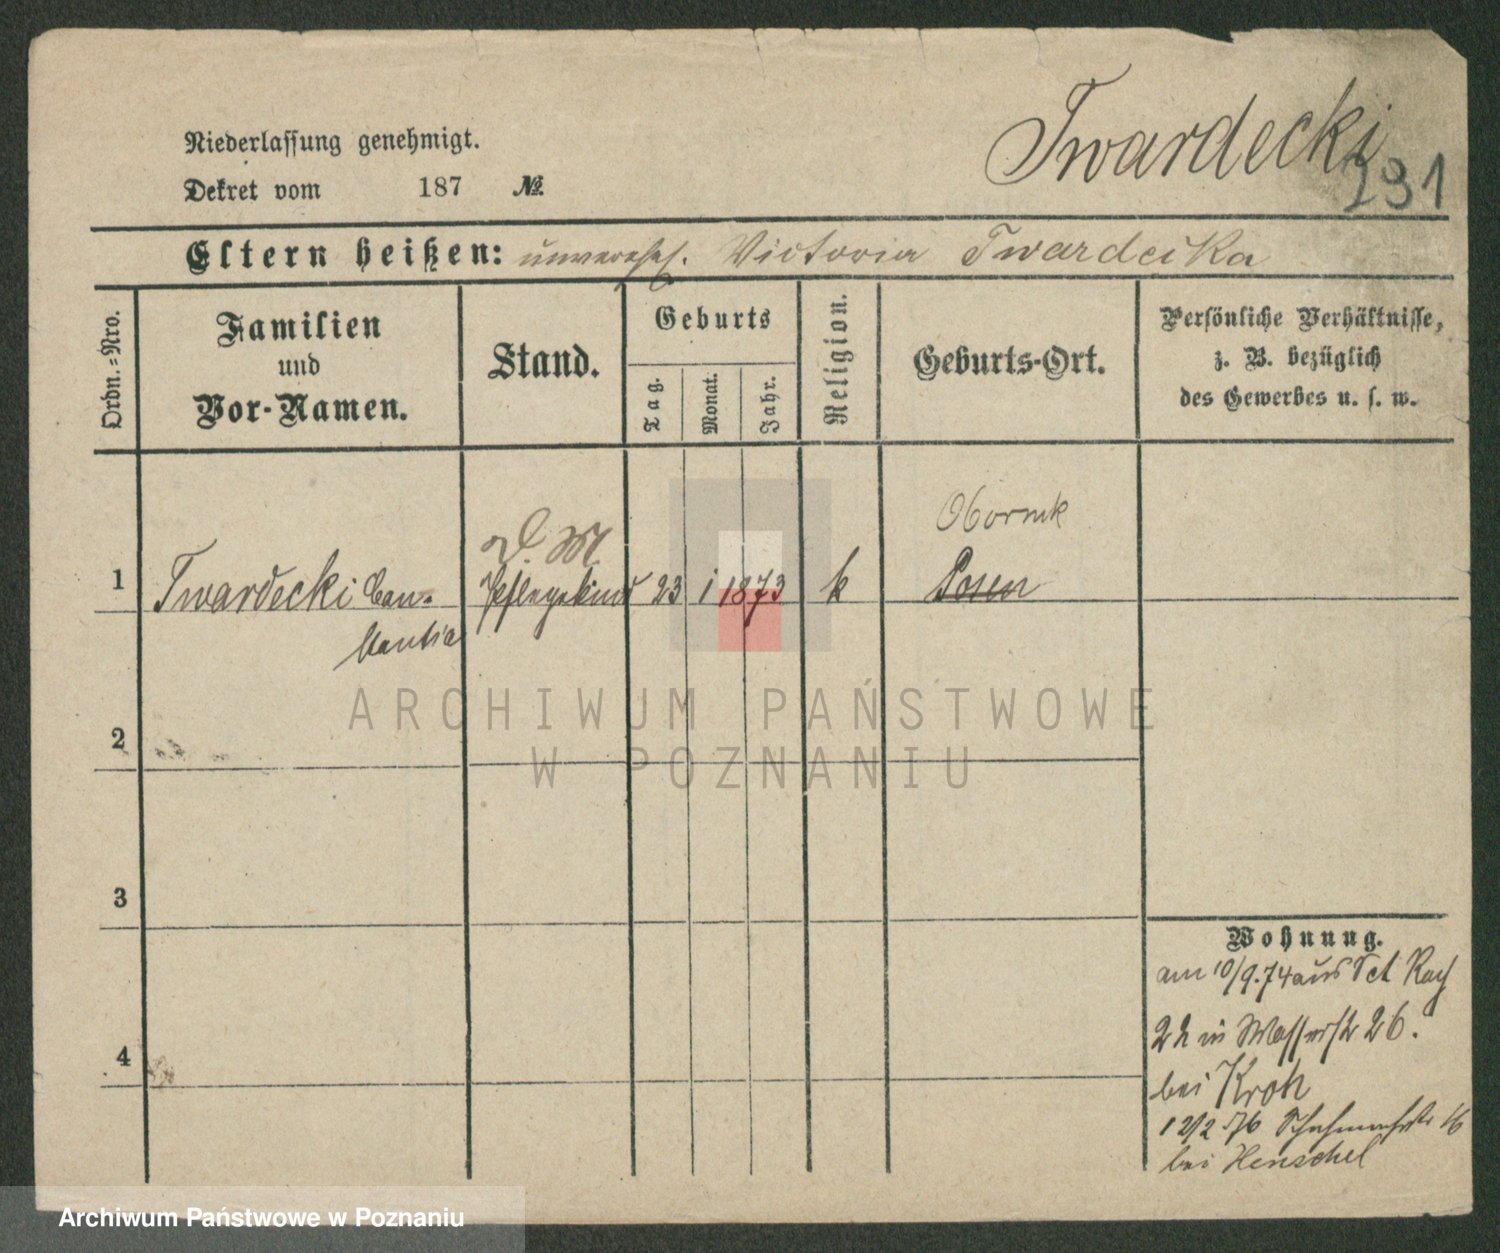 Twardecki
291
Niederlassung genehmigt.
Dekret vom 187 №
Eltern heißen: unverehel. Victoria Twardecka
Ordn.-Nro.
Familien
und
Vor-Namen.
Stand.
Geburts
Tag.
Monat.
Jahr.
Religion.
Geburts-Ort.
Persönliche Verhältnisse,
z. B. bezüglich
des Gewerbes u. s. w.
Obornik
1 Twardecki Con- Pflegekind 23 1 1873 k Posen
stantia
2
3
4
Wohnung.
am 10/9.74 aus Sct
22 in Wasserstr 26.
bei Kroh
12/2 76 16
bei Henschel
ARCHIWUM PAŃSTWOWE
W POZNANIU
Archiwum Państwowe w Poznaniu